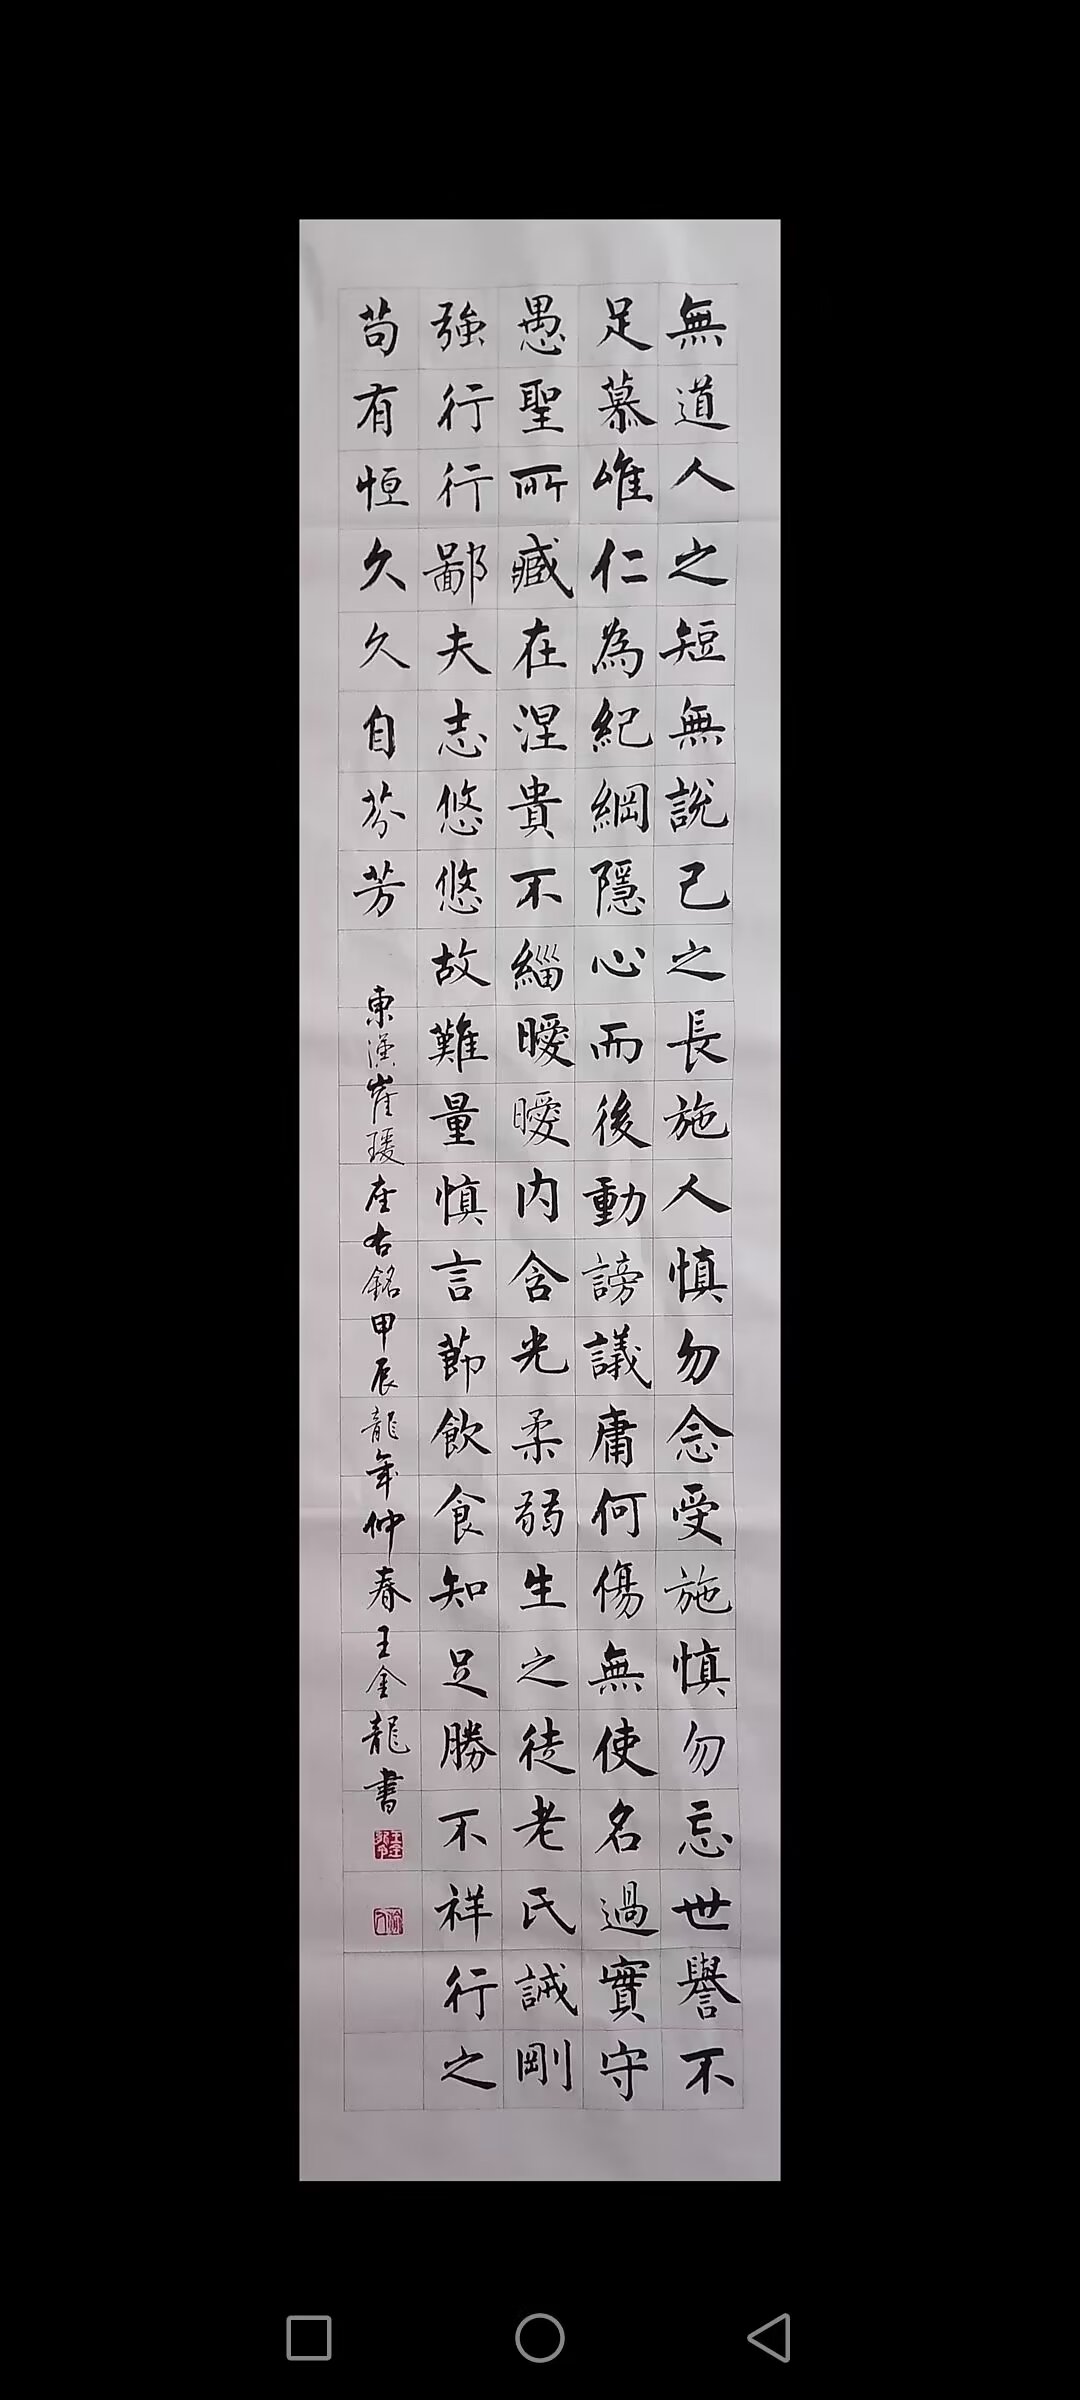 無道人之短無說己之長施人慎勿念受施慎勿忘世譽不
足慕唯仁為紀綱隱心而後動謗議庸何傷無使名過實守
愚聖所臧在涅貴不緇曖曖内含光柔弱生之徒老氏誡剛
強行行鄙夫志悠悠故難量慎言節飲食知足勝不祥行之
苟有恒久久自芬芳
東漢崔瑗座右銘甲辰龍年仲春王金龍書